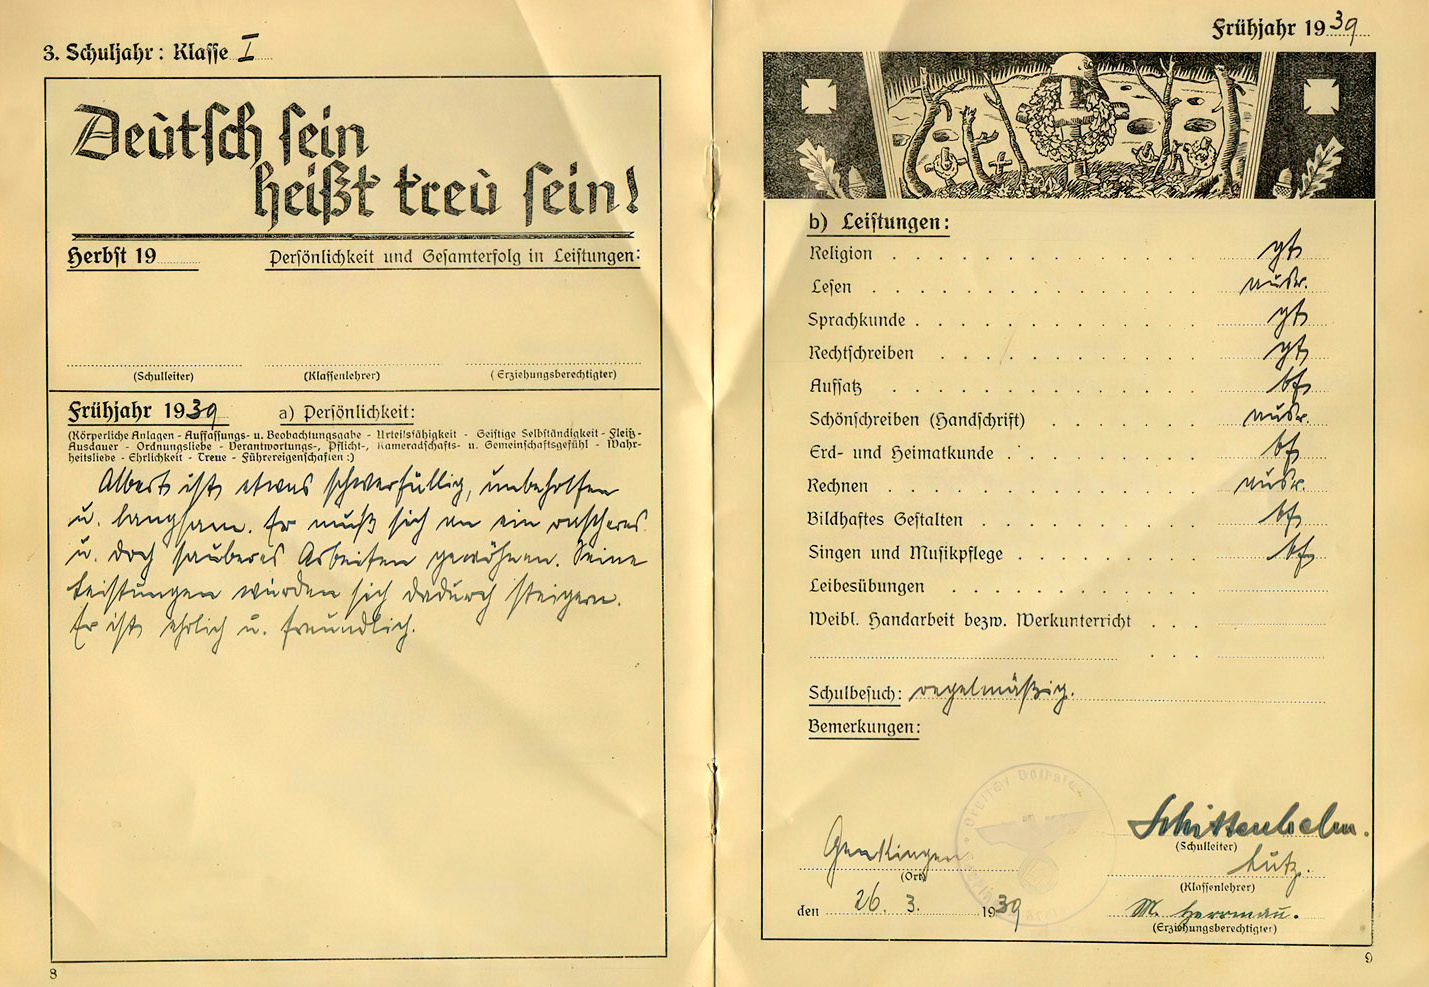 3. Schuljahr: Klasse I
Deutsch sein
heißt treu sein!
Herbst 19
Persönlichkeit und Gesamterfolg in Leistungen:
(Schulleiter) (Klassenlehrer) (Erziehungsberechtigter)
Frühjahr 1939 a) Persönlichkeit:
(Körperliche Anlagen - Auffassungs- u. Beobachtungsgabe - Urteilsfähigkeit - Geistige Selbständigkeit - Fleiß-
Ausdauer - Ordnungsliebe - Verantwortungs-, Pflicht-, Kameradschafts- u. Gemeinschaftsgefühl - Wahr-
heitsliebe - Ehrlichkeit - Treue - Führereigenschaften:)
Albert ist etwas schwerfällig, unbeholfen
u. langsam. Er muß sich an ein rascheres
u. doch sauberes Arbeiten gewöhnen. Seine
Leistungen würden sich dadurch steigern.
Er ist ehrlich u. freundlich.
8
Frühjahr 1939
b) Leistungen:
Religion gt
Lesen ausr.
Sprachkunde gt
Rechtschreiben gt
Aufsatz bf
Schönschreiben (Handschrift) ausr.
Erd- und Heimatkunde bf
Rechnen ausr.
Bildhaftes Gestalten bf
Singen und Musikpflege bf
Leibesübungen
Weibl. Handarbeit bezw. Werkunterricht
Schulbesuch: regelmäßig.
Bemerkungen:
Deutsche Volksschule
Schittenhelm.
(Schulleiter)
Genkingen
(Ort)
Lutz.
(Klassenlehrer)
den 26. 3. 1939
M. Herrmann.
(Erziehungsberechtigter)
9